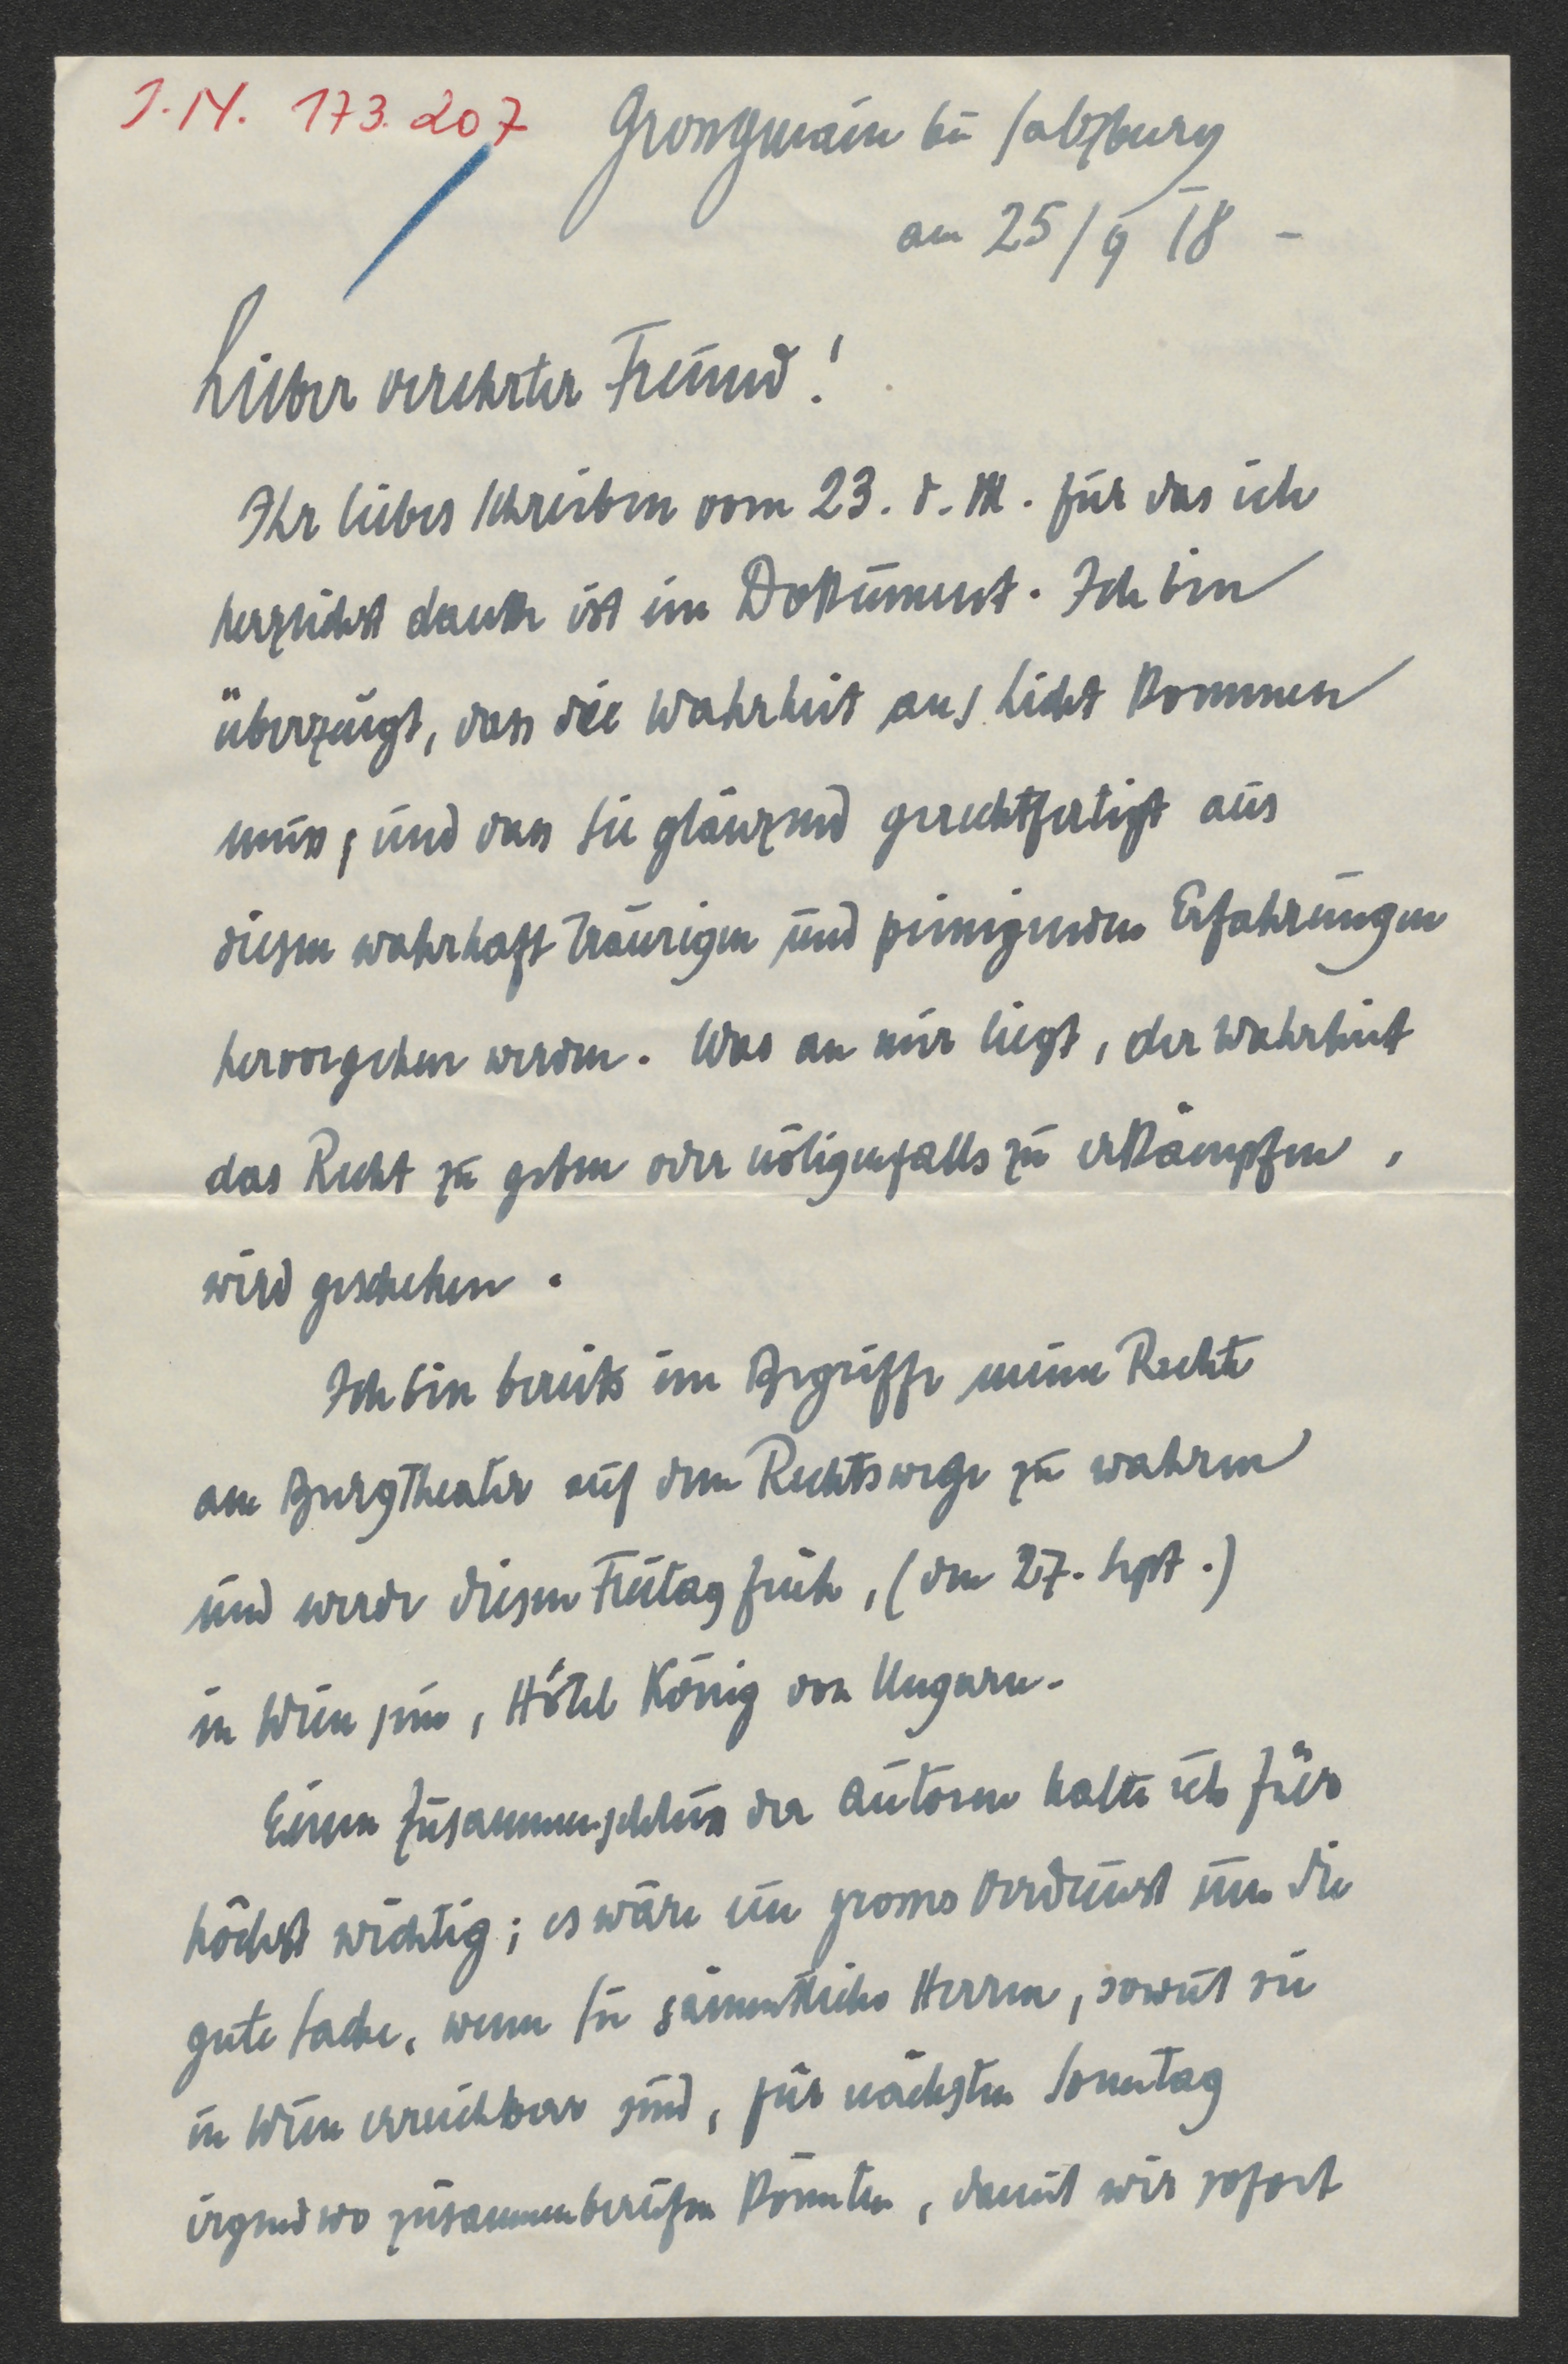 J.N. 173.207
Grossgmain bei Salzburg
am 25/9 18 -
Lieber verehrter Freund!
Ihr liebes Schreiben vom 23. d. M. für das ich
herzlichst danke ist ein Dokument. Ich bin
überzeugt, dass die Wahrheit ans Licht kommen
muss, und dass Sie glänzend gerechtfertigt aus
diesen wahrhaft traurigen und peinigenden Erfahrungen
hervorgehen werden. Was an mir liegt, der Wahrheit
das Recht zu geben oder nötigenfalls zu erkämpfen,
wird geschehen.
Ich bin bereits im Begriffe meine Rechte
am Burgtheater auf dem Rechtswege zu wahren
und werde diesen Freitag früh, (den 27. Sept.)
in Wien sein, Hôtel König von Ungarn.
Einen Zusammenschluss der Autoren halte ich für
höchst wichtig; es wäre ein grosses Verdienst um die
gute Sache, wenn Sie sämmtliche Herren, soweit sie
in Wien erreichbar sind, für nächsten Sonntag
irgendwo zusammenberufen könnten, damit wir sofort